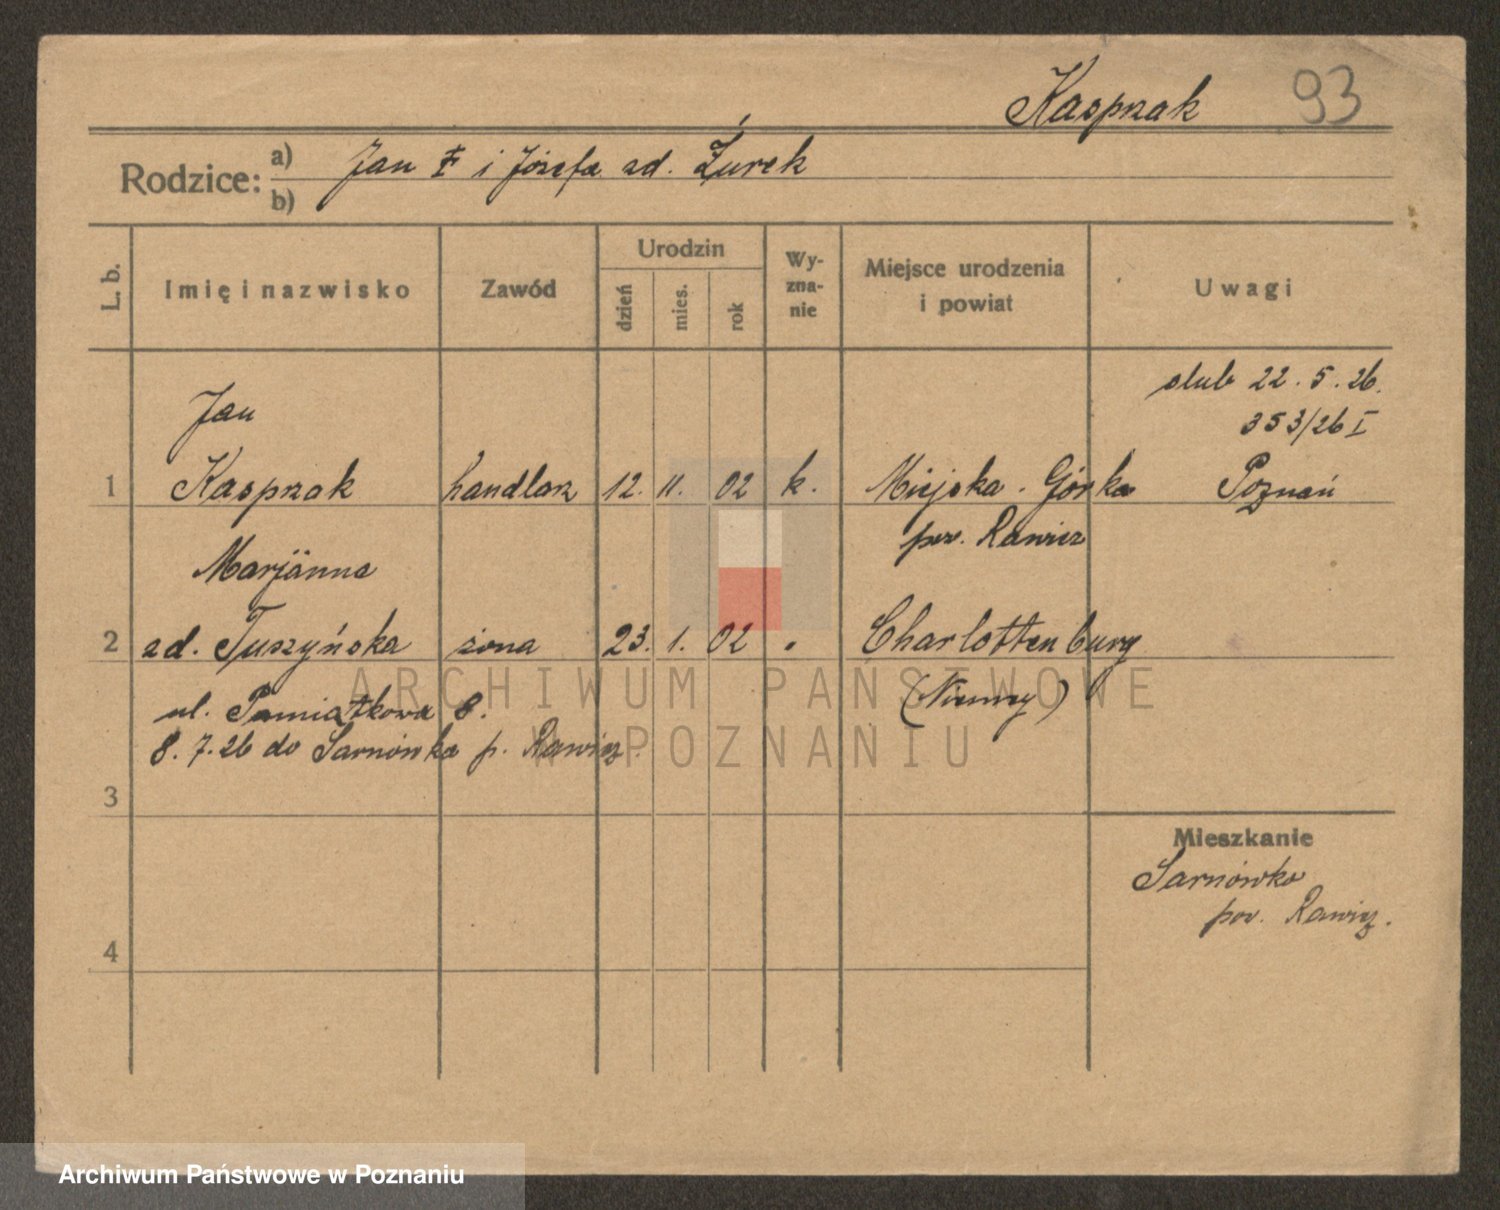 Kasprzak 93
Rodzice: a) Jan ‡ i Józefa zd. Żurek
b)
L. b. Imię i nazwisko Zawód Urodzin dzień mies. rok Wy-zna-nie Miejsce urodzenia i powiat Uwagi
ślub 22. 5. 26.
Jan 353/26 I
1 Kasprzak handlarz 12. 11. 02 k. Miejska-Górka Poznań
pow. Rawicz
Marjanna
2 zd. Tuszyńska żona 23. 1. 02 " Charlottenburg
ul. Pamiątkowa 8. (Niemcy)
8. 7. 26 do Sarnówka p. Rawicz
3
Mieszkanie
Sarnówka
pow. Rawicz.
4
ARCHIWUM PAŃSTWOWE
W POZNANIU
Archiwum Państwowe w Poznaniu